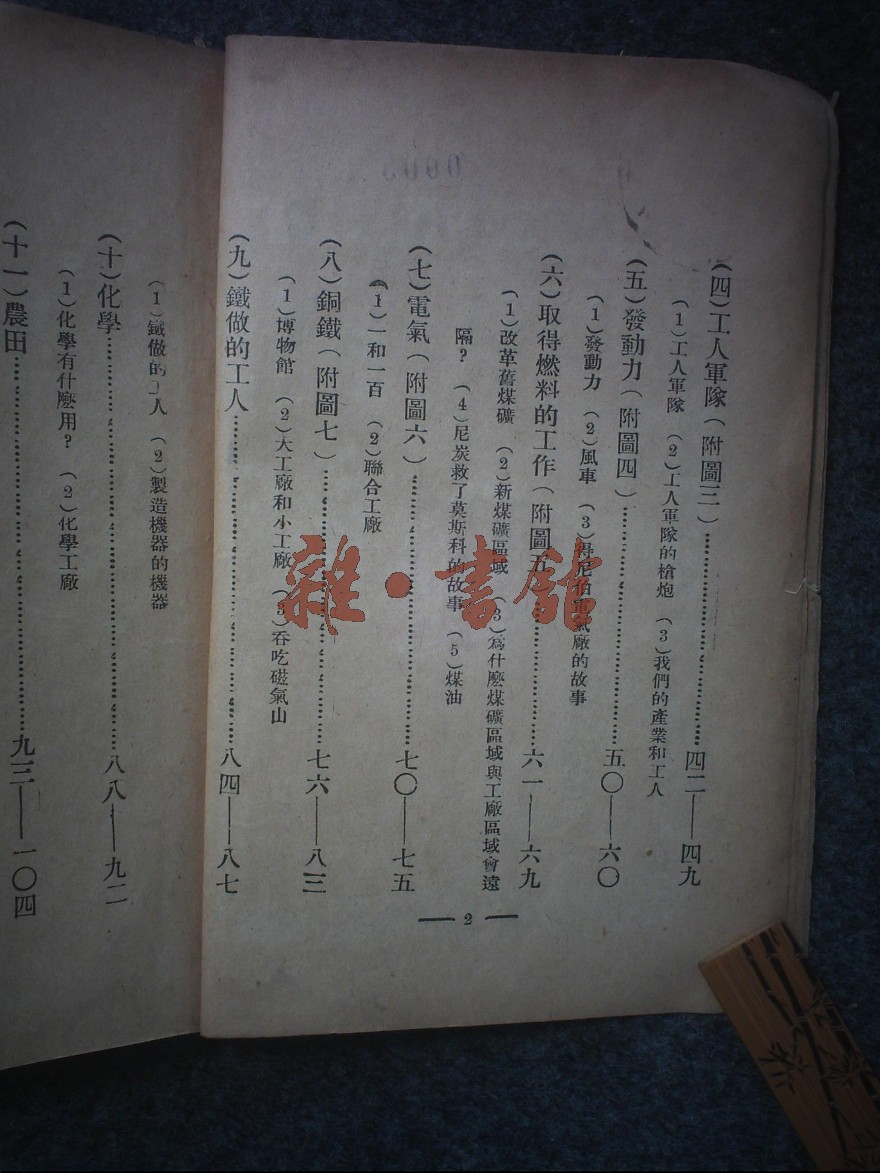 (四)工人軍隊(附圖三)……四二——四九
(1)工人軍隊 (2)工人軍隊的槍炮 (3)我們的產業和工人
(五)發動力(附圖四)……五〇——六〇
(1)發動力 (2)風車 (3)得尼伯電氣廠的故事
(六)取得燃料的工作(附圖五)……六一——六九
(1)改革舊煤礦 (2)新煤礦區域 (3)為什麼煤礦區域與工廠區域會遠
隔? (4)尼炭救了莫斯科的故事 (5)煤油
(七)電氣(附圖六)……七〇——七五
(1)一和一百 (2)聯合工廠
(八)銅鐵(附圖七)……七六——八三
(1)博物館 (2)大工廠和小工廠 (3)吞吃磁氣山
(九)鐵做的工人……八四——八七
— 2 —
(1)鐵做的工人 (2)製造機器的機器
(十)化學……八八——九二
(1)化學有什麼用? (2)化學工廠
(十一)農田……九三——一〇四
雜·書館